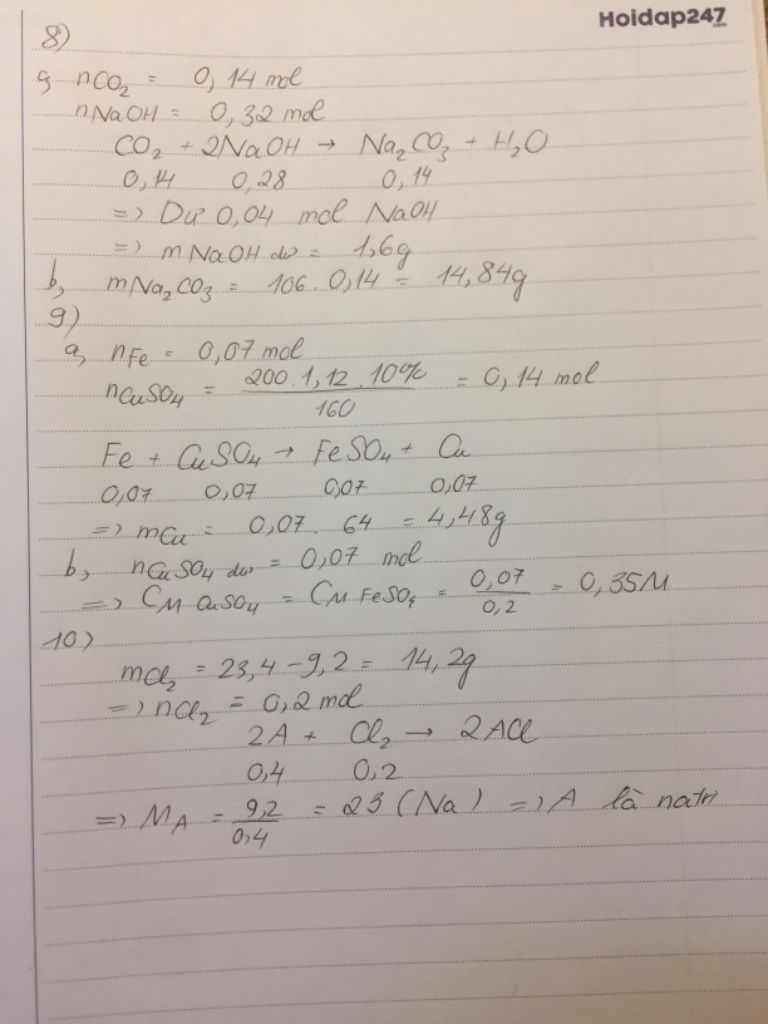 Hoidap247
8)
a, nCO₂ = 0,14 mol
nNaOH = 0,32 mol
CO₂ + 2NaOH → Na₂CO₃ + H₂O
0,14 0,28 0,14
=> Dư 0,04 mol NaOH
=> mNaOH dư = 1,6g
b, mNa₂CO₃ = 106 . 0,14 = 14,84g
9)
a, nFe = 0,07 mol
nCuSO₄ = 200.1,12.10% / 160 = 0,14 mol
Fe + CuSO₄ → FeSO₄ + Cu
0,07 0,07 0,07 0,07
=> mCu = 0,07 . 64 = 4,48g
b, nCuSO₄ dư = 0,07 mol
=> CM CuSO₄ = CM FeSO₄ = 0,07 / 0,2 = 0,35M
10)
mCl₂ = 23,4 - 9,2 = 14,2g
=> nCl₂ = 0,2 mol
2A + Cl₂ → 2ACl
0,4 0,2
=> MA = 9,2 / 0,4 = 23 (Na) => A là natri